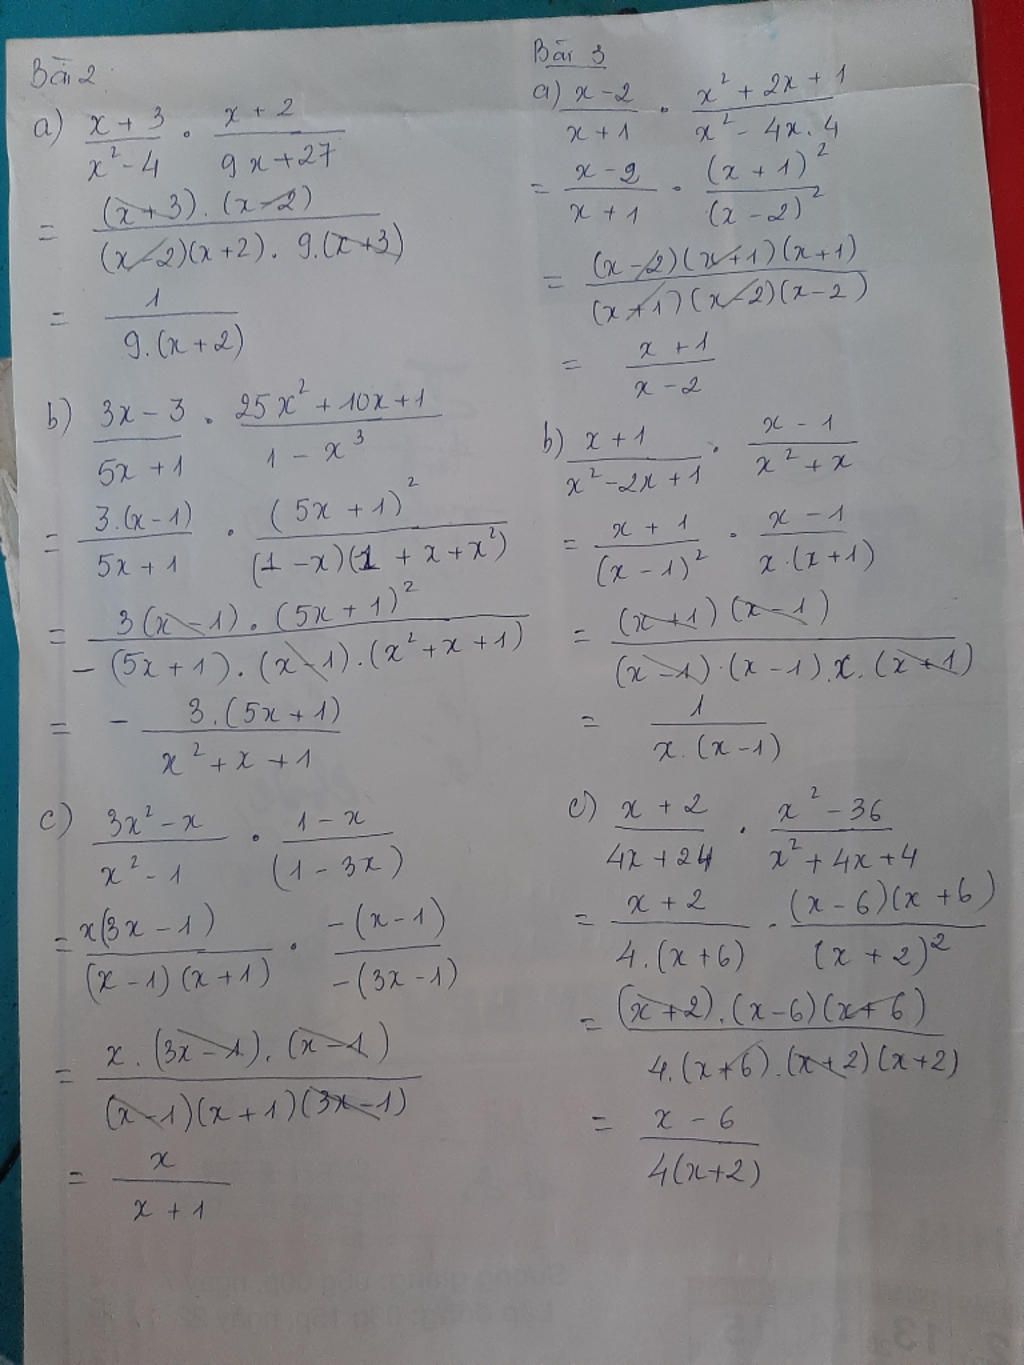 Bài 2
a) (x + 3)/(x² - 4) . (x + 2)/(9x + 27)
= ((x + 3) . (x - 2))/((x - 2)(x + 2) . 9.(x + 3))
= 1/(9.(x + 2))
b) (3x - 3)/(5x + 1) . (25x² + 10x + 1)/(1 - x³)
= (3.(x - 1))/(5x + 1) . (5x + 1)²/((1 - x)(1 + x + x²))
= (3(x - 1) . (5x + 1)²)/(- (5x + 1) . (x - 1) . (x² + x + 1))
= - (3.(5x + 1))/(x² + x + 1)
c) (3x² - x)/(x² - 1) . (1 - x)/((1 - 3x))
= (x(3x - 1))/((x - 1)(x + 1)) . (-(x - 1))/(-(3x - 1))
= (x . (3x - 1) . (x - 1))/((x - 1)(x + 1)(3x - 1))
= x/(x + 1)
Bài 3
a) (x - 2)/(x + 1) . (x² + 2x + 1)/(x² - 4x . 4)
= (x - 2)/(x + 1) . (x + 1)²/(x - 2)²
= ((x - 2)(x + 1)(x + 1))/((x + 1)(x - 2)(x - 2))
= (x + 1)/(x - 2)
b) (x + 1)/(x² - 2x + 1) . (x - 1)/(x² + x)
= (x + 1)/(x - 1)² . (x - 1)/(x.(x + 1))
= ((x + 1)(x - 1))/((x - 1) . (x - 1) . x . (x + 1))
= 1/(x.(x - 1))
c) (x + 2)/(4x + 24) . (x² - 36)/(x² + 4x + 4)
= (x + 2)/(4.(x + 6)) . ((x - 6)(x + 6))/(x + 2)²
= ((x + 2) . (x - 6)(x + 6))/(4.(x + 6) . (x + 2)(x + 2))
= (x - 6)/(4(x + 2))